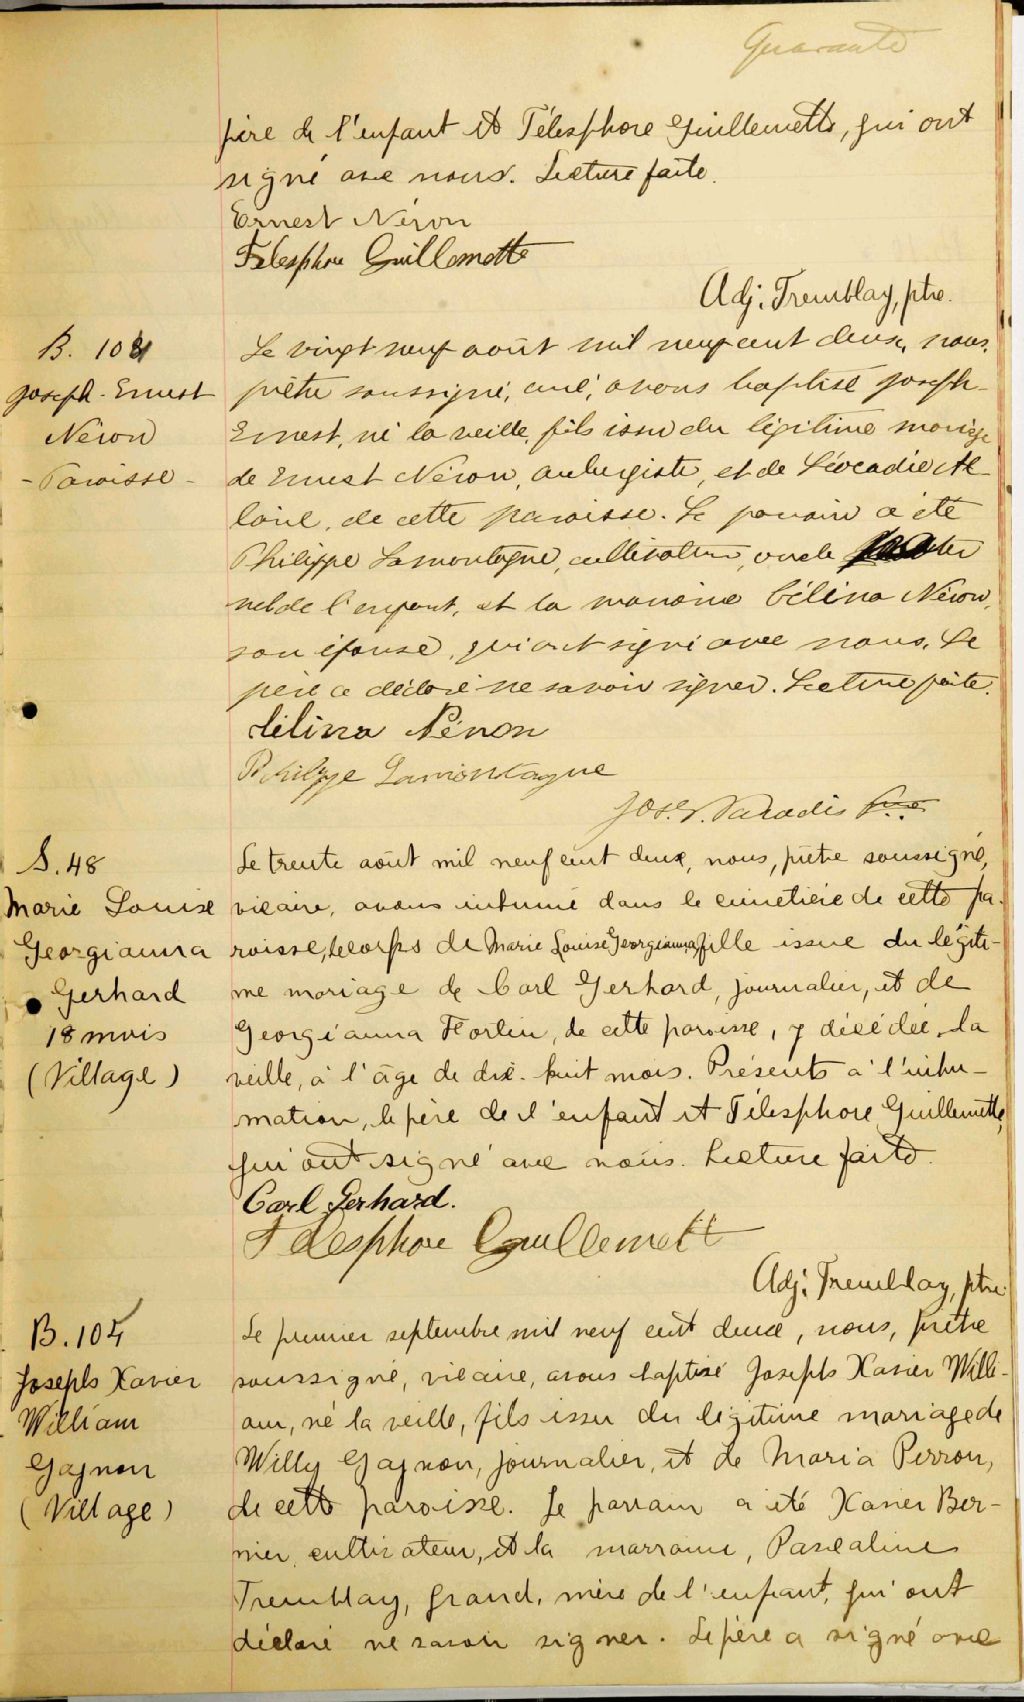 Quarante
père de l'enfant et Télesphore Guillemette, qui ont
signé avec nous. Lecture faite.
Ernest Néron
Télesphore Guillemette
Adj. Tremblay, ptre.
B. 103
Joseph-Ernest
Néron
- Paroisse -
Le vingt neuf août mil neuf cent deux, nous,
prêtre soussigné, curé, avons baptisé Joseph-
Ernest, né la veille, fils issu du légitime mariage
de Ernest Néron, aubergiste, et de Léocadie Al-
laire, de cette paroisse. Le parrain a été
Philippe Lamontagne, cultivateur, oncle pater
nel de l'enfant, et la marraine Célina Néron,
son épouse, qui ont signé avec nous. Le
père a déclaré ne savoir signer. Lecture faite.
Célina Néron
Philippe Lamontagne
Jos. Paradis Ptre
S. 48
Marie Louise
Georgianna
Gerhard
18 mois
(Village)
Le trente août mil neuf cent deux, nous, prêtre soussigné,
vicaire, avons inhumé dans le cimetière de cette pa-
roisse, le corps de Marie Louise Georgianna, fille issue du légiti-
me mariage de Carl Gerhard, journalier, et de
Georgianna Fortin, de cette paroisse, y décédée la
veille, à l'âge de dix-huit mois. Présents à l'inhu-
mation, le père de l'enfant et Télesphore Guillemette,
qui ont signé avec nous. Lecture faite.
Carl Gerhard.
Telesphore Guillemette
Adj. Tremblay, ptre.
B. 104
Joseph Xavier
William
Gagnon
(Village)
Le premier septembre mil neuf cent deux, nous, prêtre
soussigné, vicaire, avons baptisé Joseph Xavier Willi-
am, né la veille, fils issu du légitime mariage de
Willy Gagnon, journalier, et de Maria Perron,
de cette paroisse. Le parrain a été Xavier Ber-
nier, cultivateur, et la marraine, Pascaline
Tremblay, grand'mère de l'enfant, qui ont
déclaré ne savoir signer. Le père a signé avec